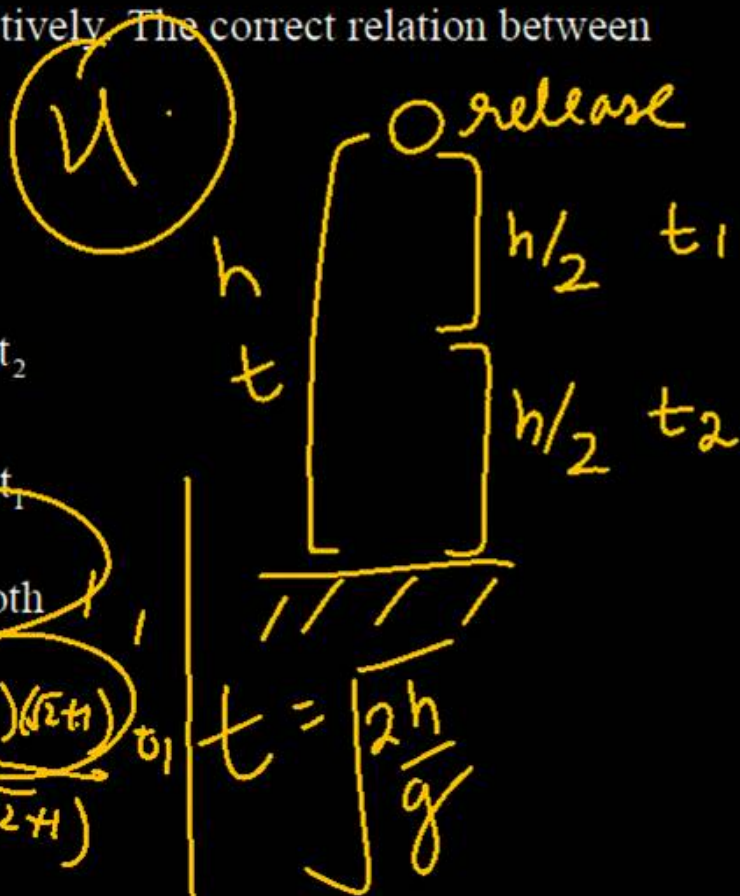 tively. The correct relation between
release
h/2 t1
h
t
t₂
h/2 t2
t₁
oth
)(√2+1) t1
2+1)
t = √2h/g